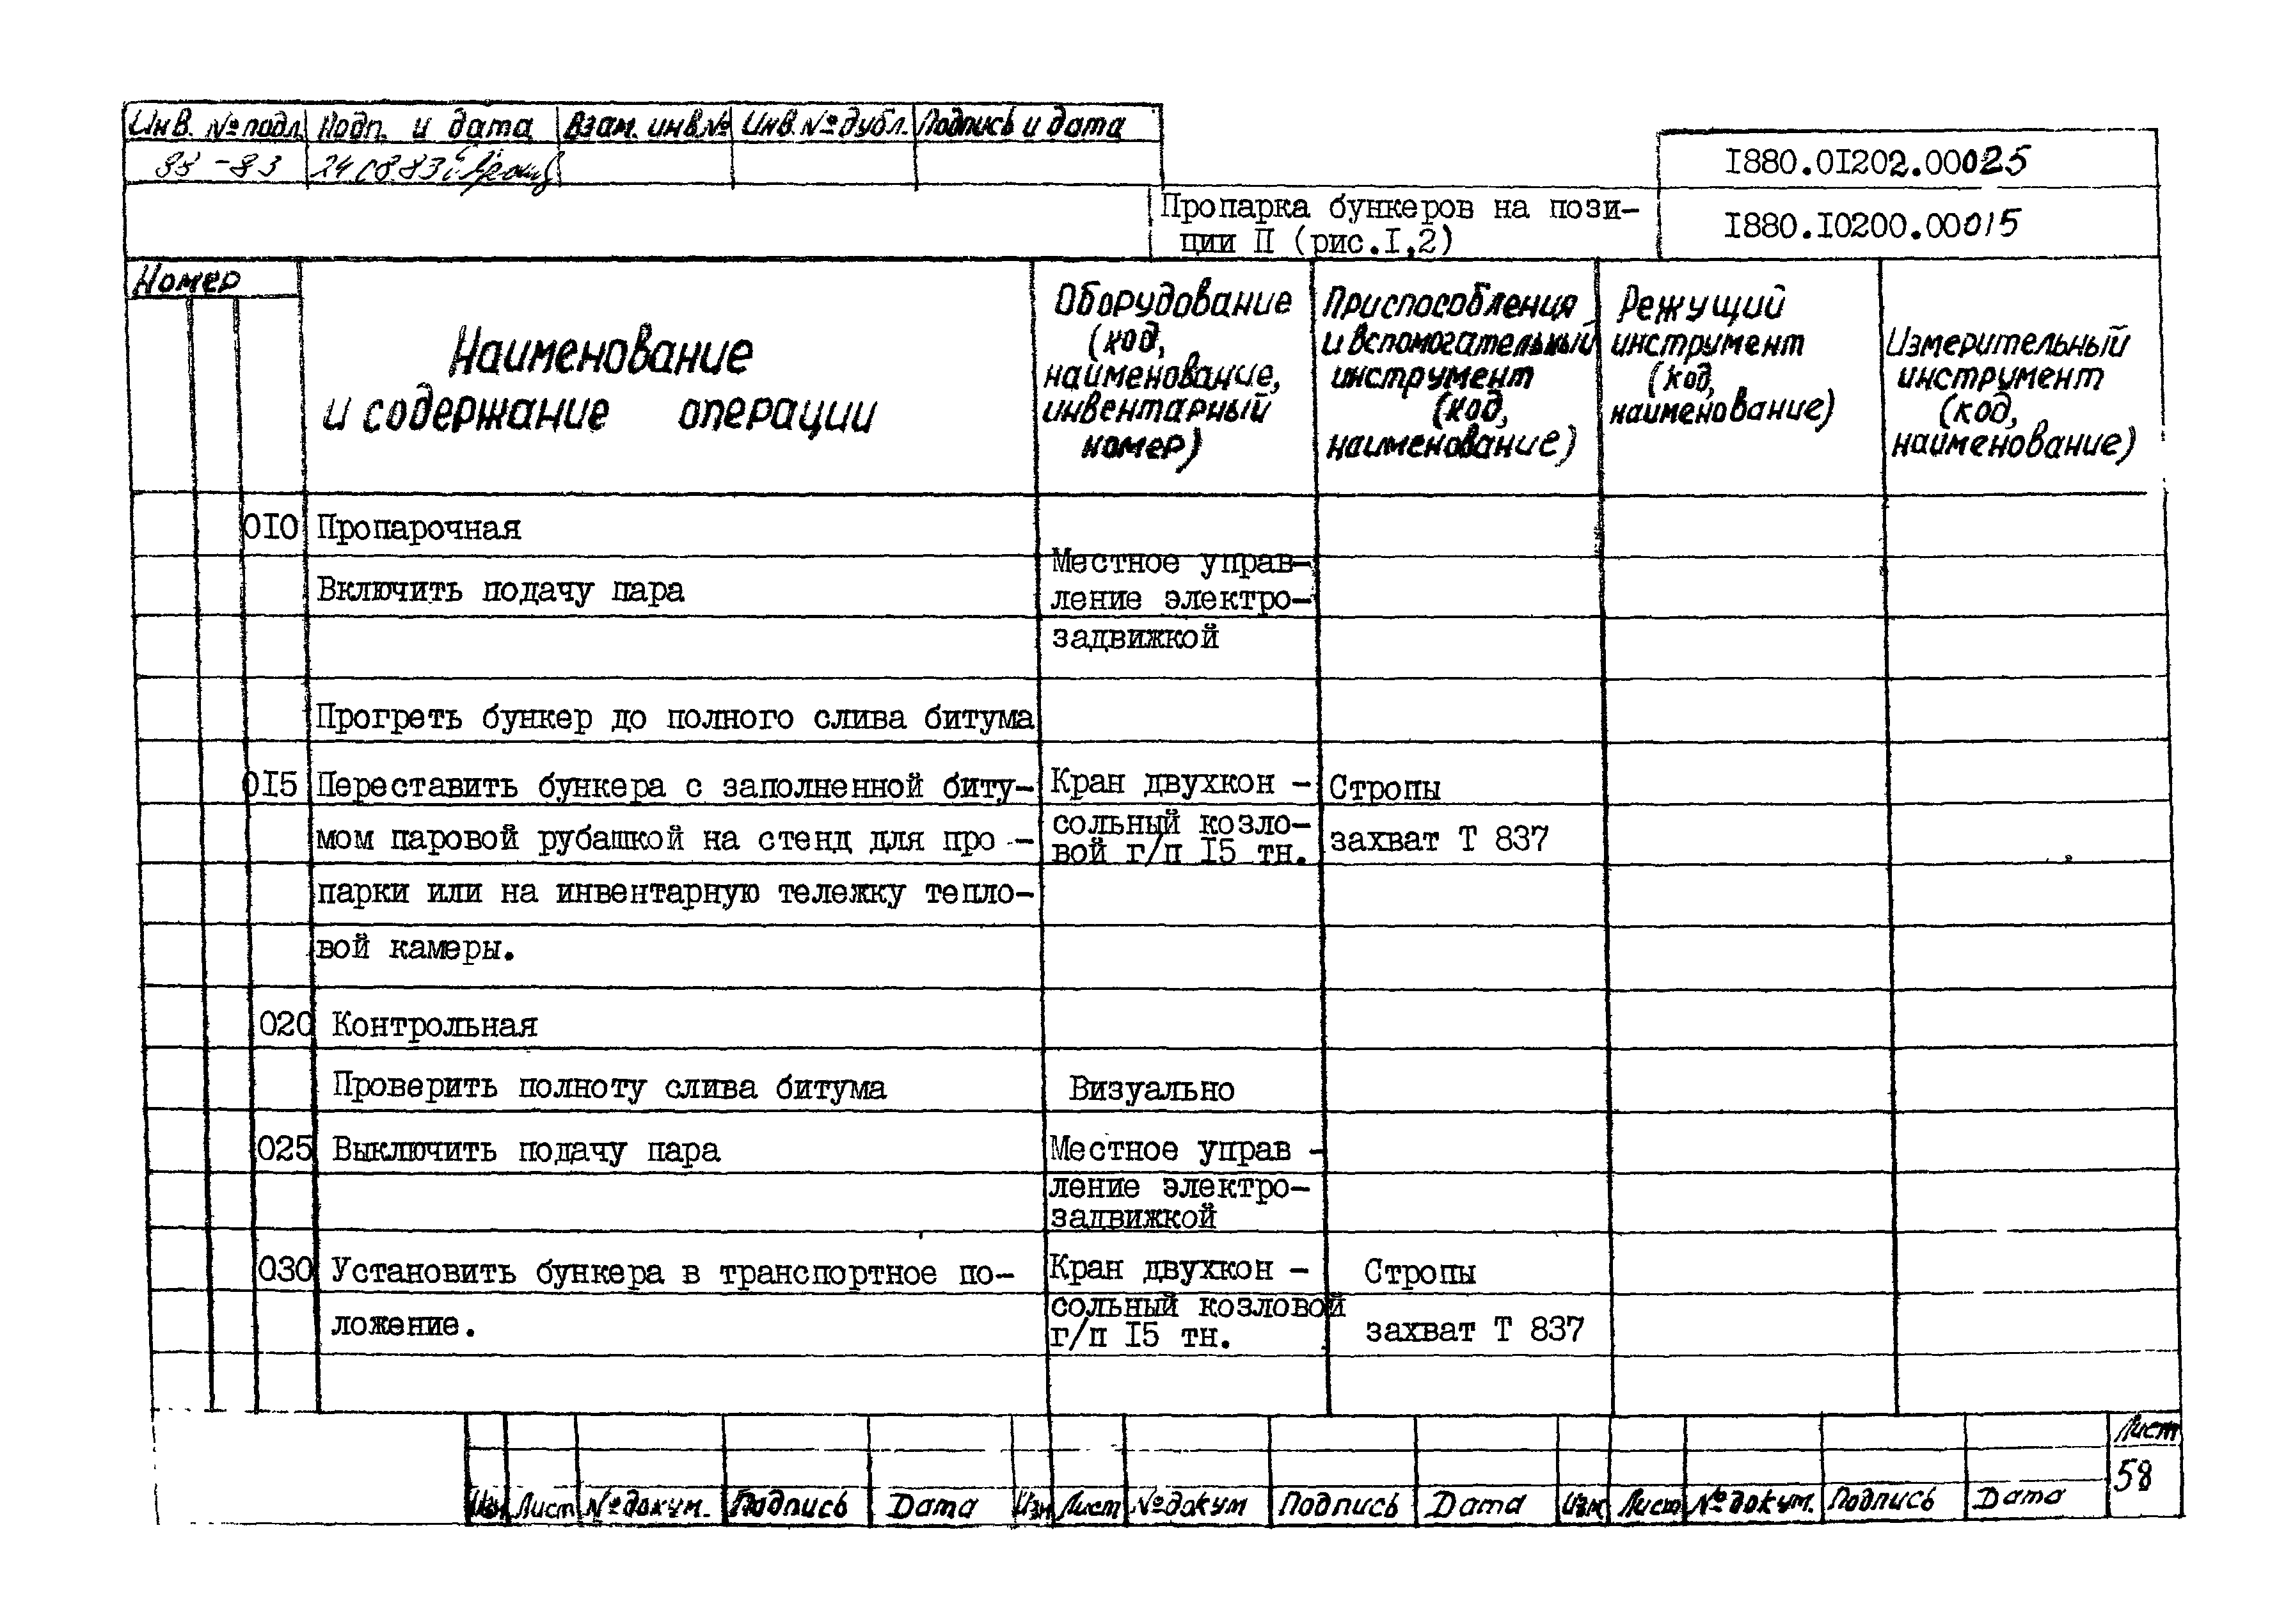 Инв. № подл. Подп. и дата Взам. инв.№ Инв. № дубл. Подпись и дата
88-83 24 08.83
I880.0I202.00025
Пропарка бункеров на пози-
ции П (рис.I,2)
I880.I0200.00015
Номер
Наименование
и содержание операции
Оборудование
(код,
наименование,
инвентарный
номер)
Приспособления
и вспомогательный
инструмент
(код,
наименование)
Режущий
инструмент
(код,
наименование)
Измерительный
инструмент
(код,
наименование)
0I0 Пропарочная
Включить подачу пара
Местное управ-
ление электро-
задвижкой
Прогреть бункер до полного слива битума
0I5 Переставить бункера с заполненной биту-
мом паровой рубашкой на стенд для про -
парки или на инвентарную тележку тепло-
вой камеры.
Кран двухкон -
сольный козло-
вой г/п I5 тн.
Стропы
захват Т 837
020 Контрольная
Проверить полноту слива битума Визуально
025 Выключить подачу пара
Местное управ -
ление электро-
задвижкой
030 Установить бункера в транспортное по-
ложение.
Кран двухкон -
сольный козловой
г/п I5 тн.
Стропы
захват Т 837
Лист
58
Изм Лист № докум. Подпись Дата Изм Лист № докум Подпись Дата Изм Лист № докум. Подпись Дата